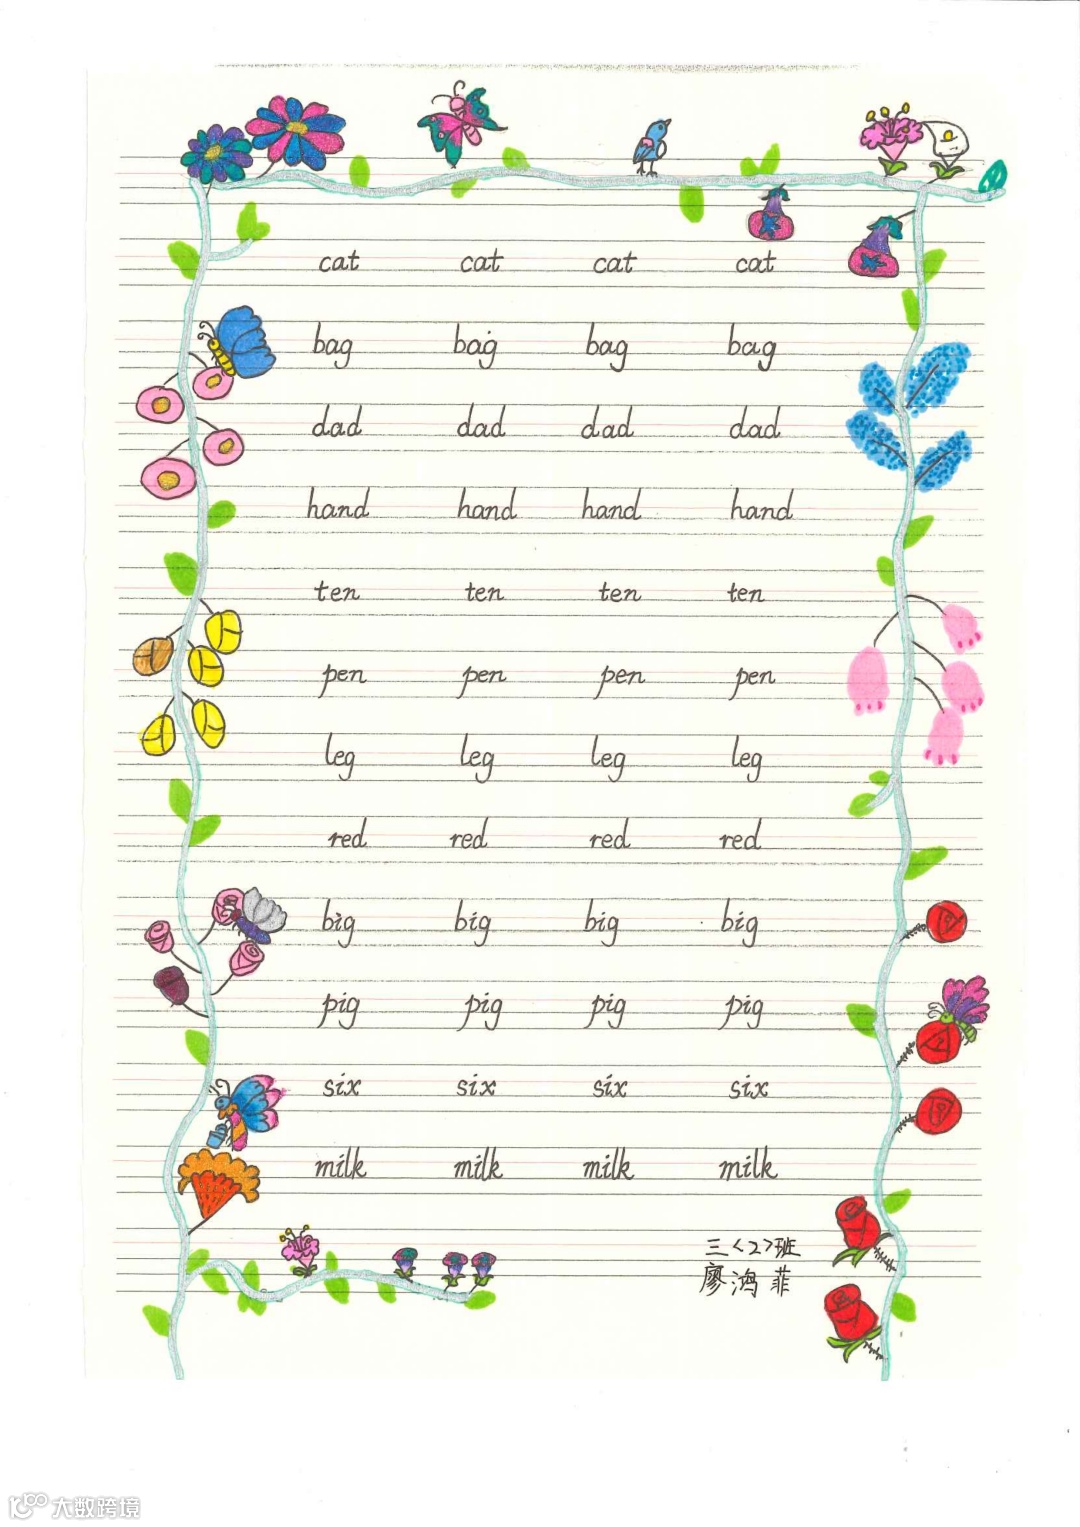 cat cat cat cat
bag bag bag bag
dad dad dad dad
hand hand hand hand
ten ten ten ten
pen pen pen pen
leg leg leg leg
red red red red
big big big big
pig pig pig pig
six six six six
milk milk milk milk
三<2>班
廖鸿菲
大数跨境